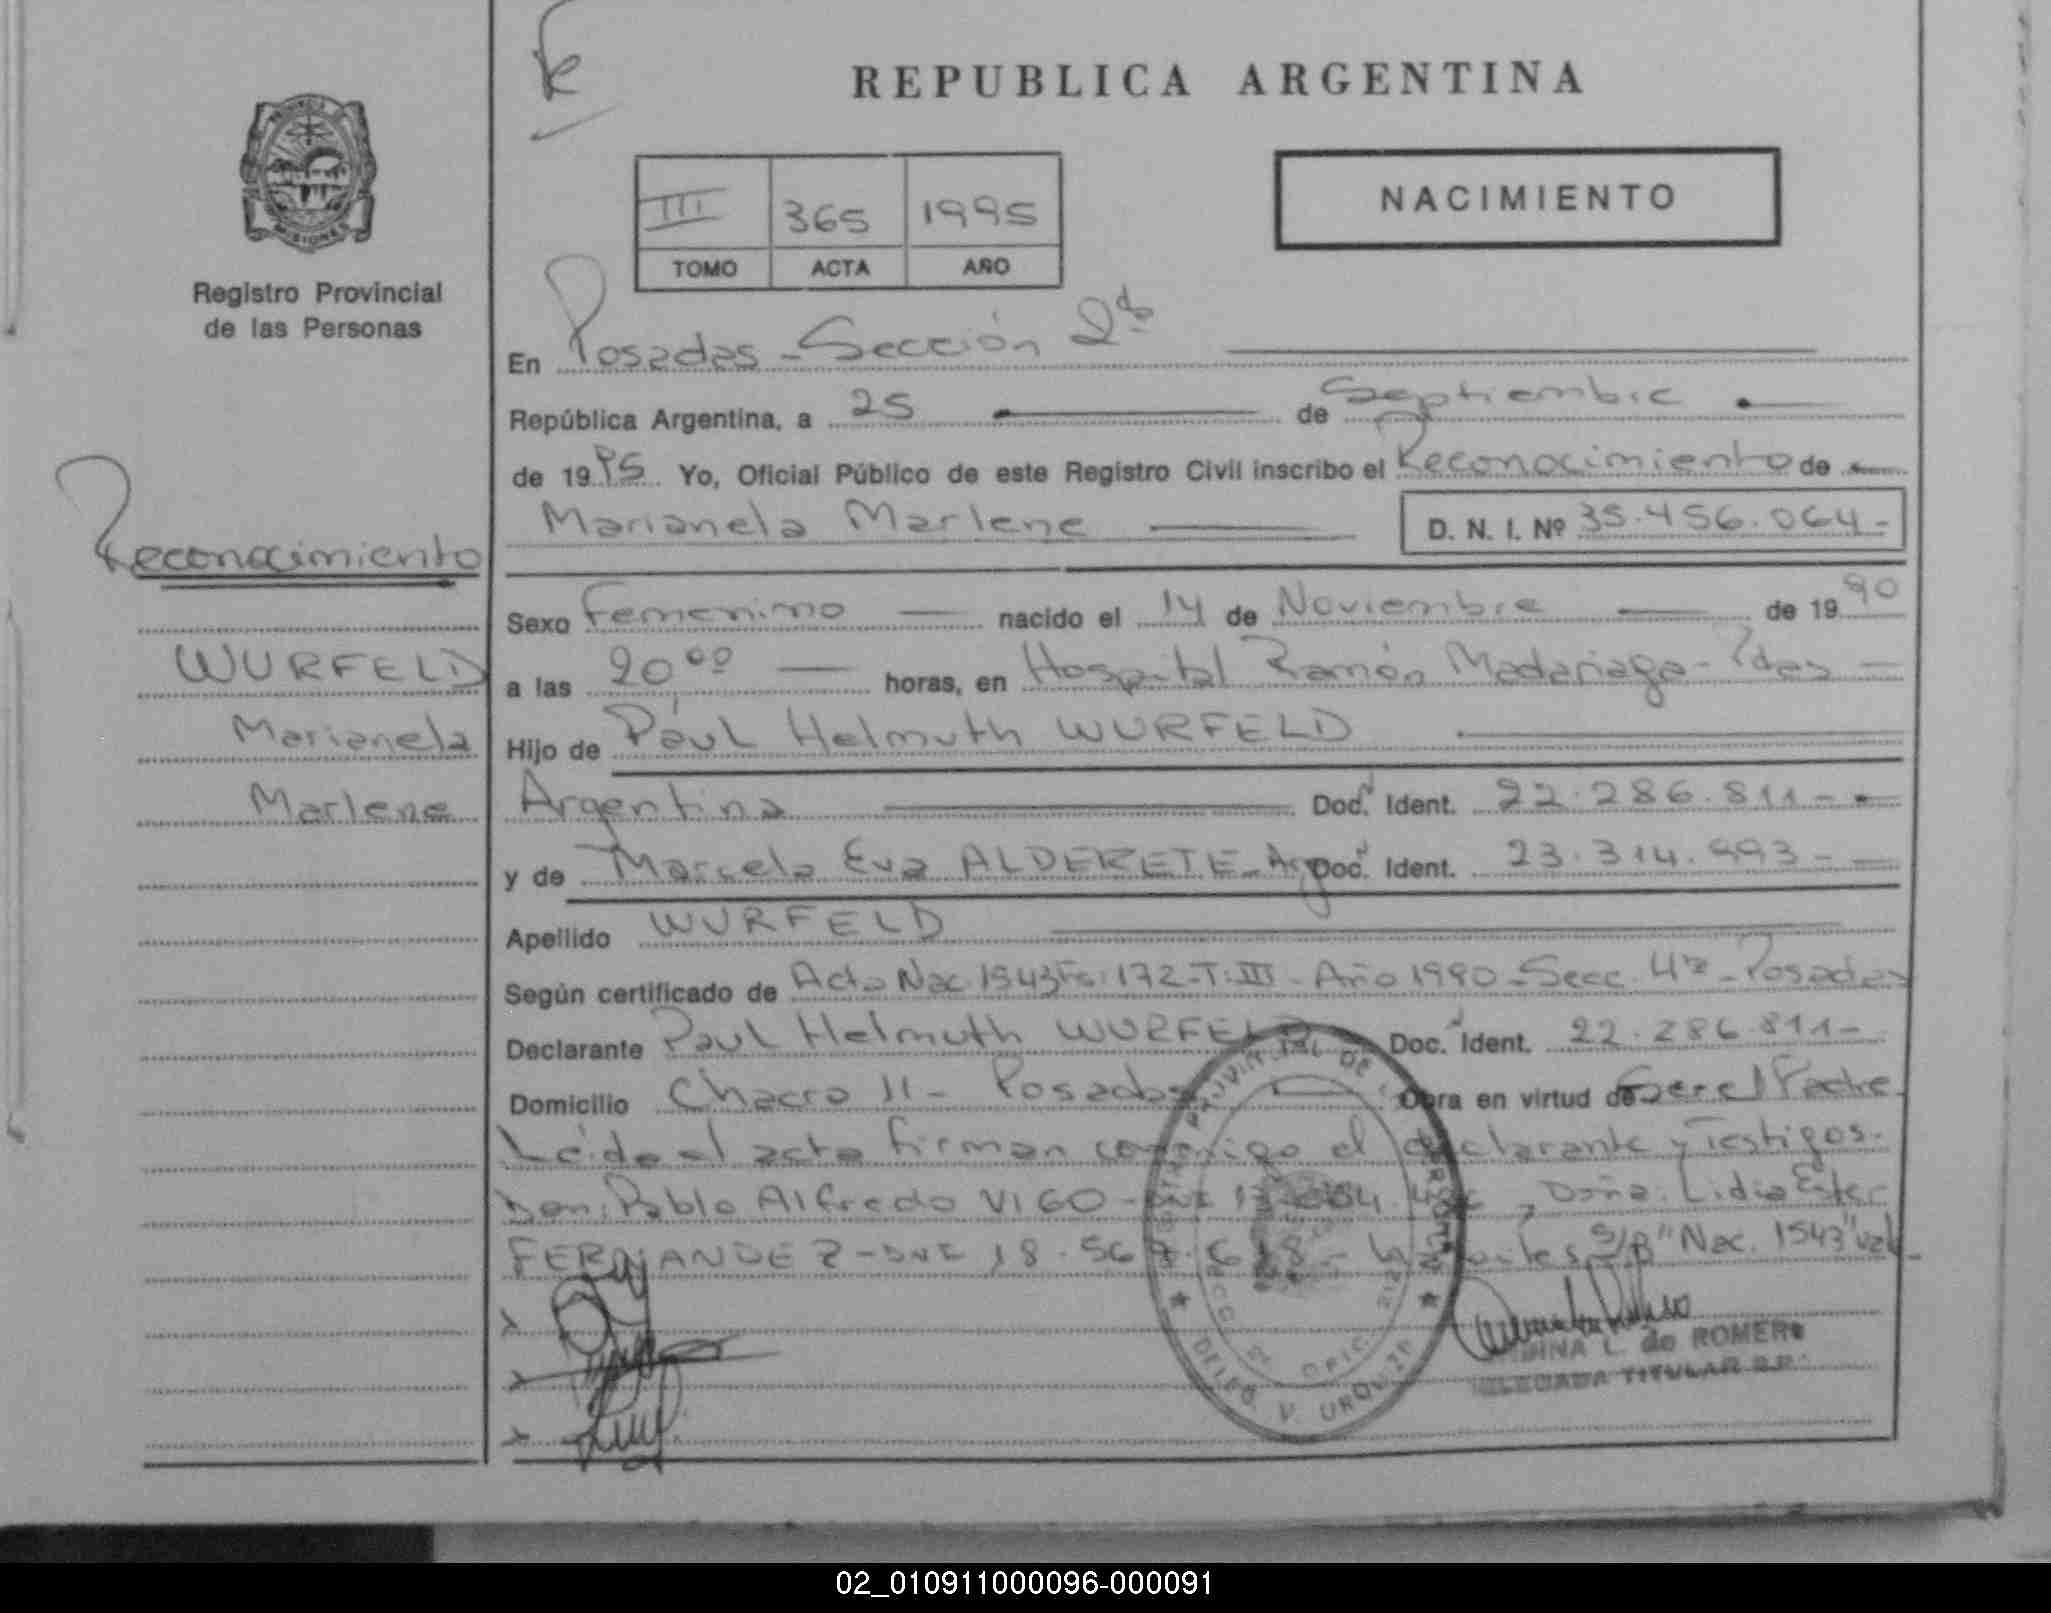 REPUBLICA ARGENTINA
NACIMIENTO
III 365 1995
TOMO ACTA AÑO
MISIONES
Registro Provincial
de las Personas
En Posadas - Sección 2da
República Argentina, a 25 de Septiembre
de 1995. Yo, Oficial Público de este Registro Civil inscribo el Reconocimiento de
Marianela Marlene D. N. I. Nº 35.456.064-
Reconocimiento
WURFELD
Marianela
Marlene
Sexo Femenino nacido el 14 de Noviembre de 1990
a las 20,00 horas, en Hospital Ramón Madariaga - Pdas
Hijo de Paul Helmuth WURFELD
Argentina Doc. Ident. 22.286.811-
y de Marcela Eva ALDERETE - Arg Doc. Ident. 23.314.993-
Apellido WURFELD
Según certificado de Acta Nac. 1543 Fs: 172-T. III - Año 1990 - Secc. 4ª - Posadas
Declarante Paul Helmuth WURFELD Doc. Ident. 22.286.811-
Domicilio Chacra 11 - Posadas Obra en virtud de Ser el Padre
Leída el acta firman conmigo el declarante y Testigos.
Don: Pablo Alfredo VIGO - DNI y Doña: Lidia Ester
FERNANDEZ - DNI 18. S/B "Nac. 1543" vale
PROVINCIAL DE
DELEG. V. URQUIZA
L. de ROMERO
DELEGADA TITULAR
02_010911000096-000091